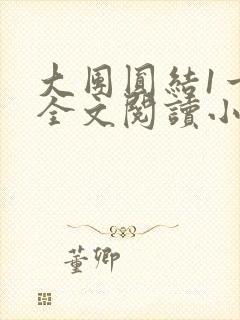 大團圓結1-
全文閱讀小
董卿